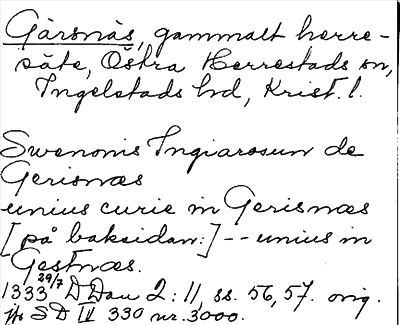 Gärsnäs, gammalt herre-
säte, Östra Herrestads sn,
Ingelstads hd, Krist. l.
Swenonis Ingiarosun de
Gerisnæs
unius curie in Gerisnæs
[på baksidan:] -- unius in
Gestnæs.
1333 29/7 D Dan 2:11, ss. 56, 57. orig.
jfr SD IV 330 nr. 3000.